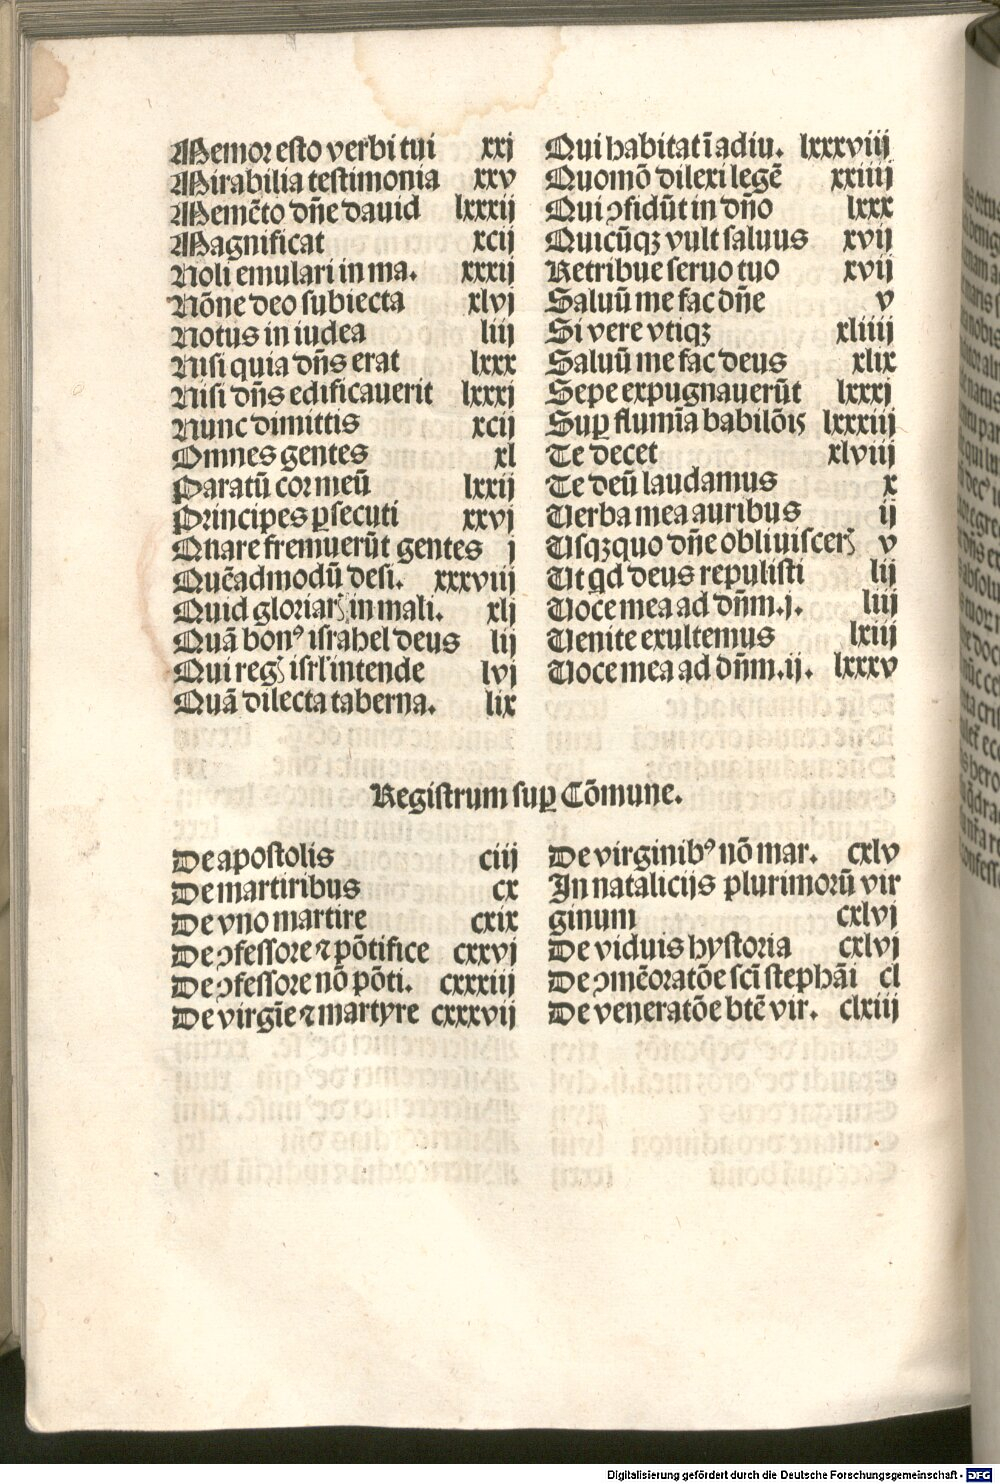 Memor esto verbi tui xxj
Mirabilia testimonia xxv
Memẽto dñe dauid lxxxij
Magnificat xcij
Noli emulari in ma. xxxij
Nõne deo subiecta xlvj
Notus in iudea liij
Nisi quia dñs erat lxxx
Nisi dñs edificauerit lxxxj
Nunc dimittis xcij
Omnes gentes xl
Paratũ cor meũ lxxij
Principes ꝑsecuti xxvj
Quare fremuerũt gentes j
Quẽadmodũ desi. xxxviij
Quid gloriarꝭ in mali. xlj
Quã bonꝰ israhel deus lij
Qui regꝭ isrl' intende lvj
Quã dilecta taberna. lix
Qui habitat ĩ adiu. lxxxviij
Quomõ dilexi legẽ xxiiij
Qui ꝯfidũt in dño lxxx
Quicũqꝫ vult saluus xvij
Retribue seruo tuo xvij
Saluũ me fac dñe v
Si vere vtiqꝫ xliiij
Saluũ me fac deus xlix
Sepe expugnauerũt lxxxj
Suꝑ flumĩa babilõis lxxxiij
Te decet xlviij
Te deũ laudamus x
Uerba mea auribus ij
Usqꝫquo dñe obliuiscerꝭ v
Ut qd deus repulisti lij
Uoce mea ad dñm.j. liij
Uenite exultemus lxiij
Uoce mea ad dñm.ij. lxxxv
Registrum suꝑ Cõmune.
De apostolis ciij
De martiribus cx
De vno martire cxix
De ꝯfessore ⁊ põtifice cxxvj
De ꝯfessore nõ põti. cxxxiij
De virgĩe ⁊ martyre cxxxvij
De virginibꝰ nõ mar. cxlv
In natalicijs plurimorũ vir
ginum cxlvj
De viduis hystoria cxlvj
De ꝯmẽoratõe scĩ stephãi cl
De veneratõe btẽ vir. clxiij
Digitalisierung gefördert durch die Deutsche Forschungsgemeinschaft - DFG